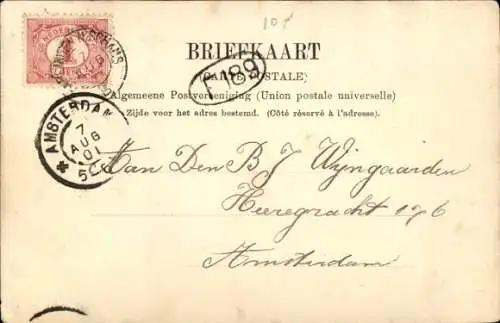 10f
BRIEFKAART
(CARTE POSTALE)
F 189
Algemeene Postvereeniging (Union postale universelle)
Zijde voor het adres bestemd. (Côté réservé à l'adresse).
AMSTERDAM
7
AUG
01
Van Den B J Wijngaarden
Heeregracht 176
Amsterdam